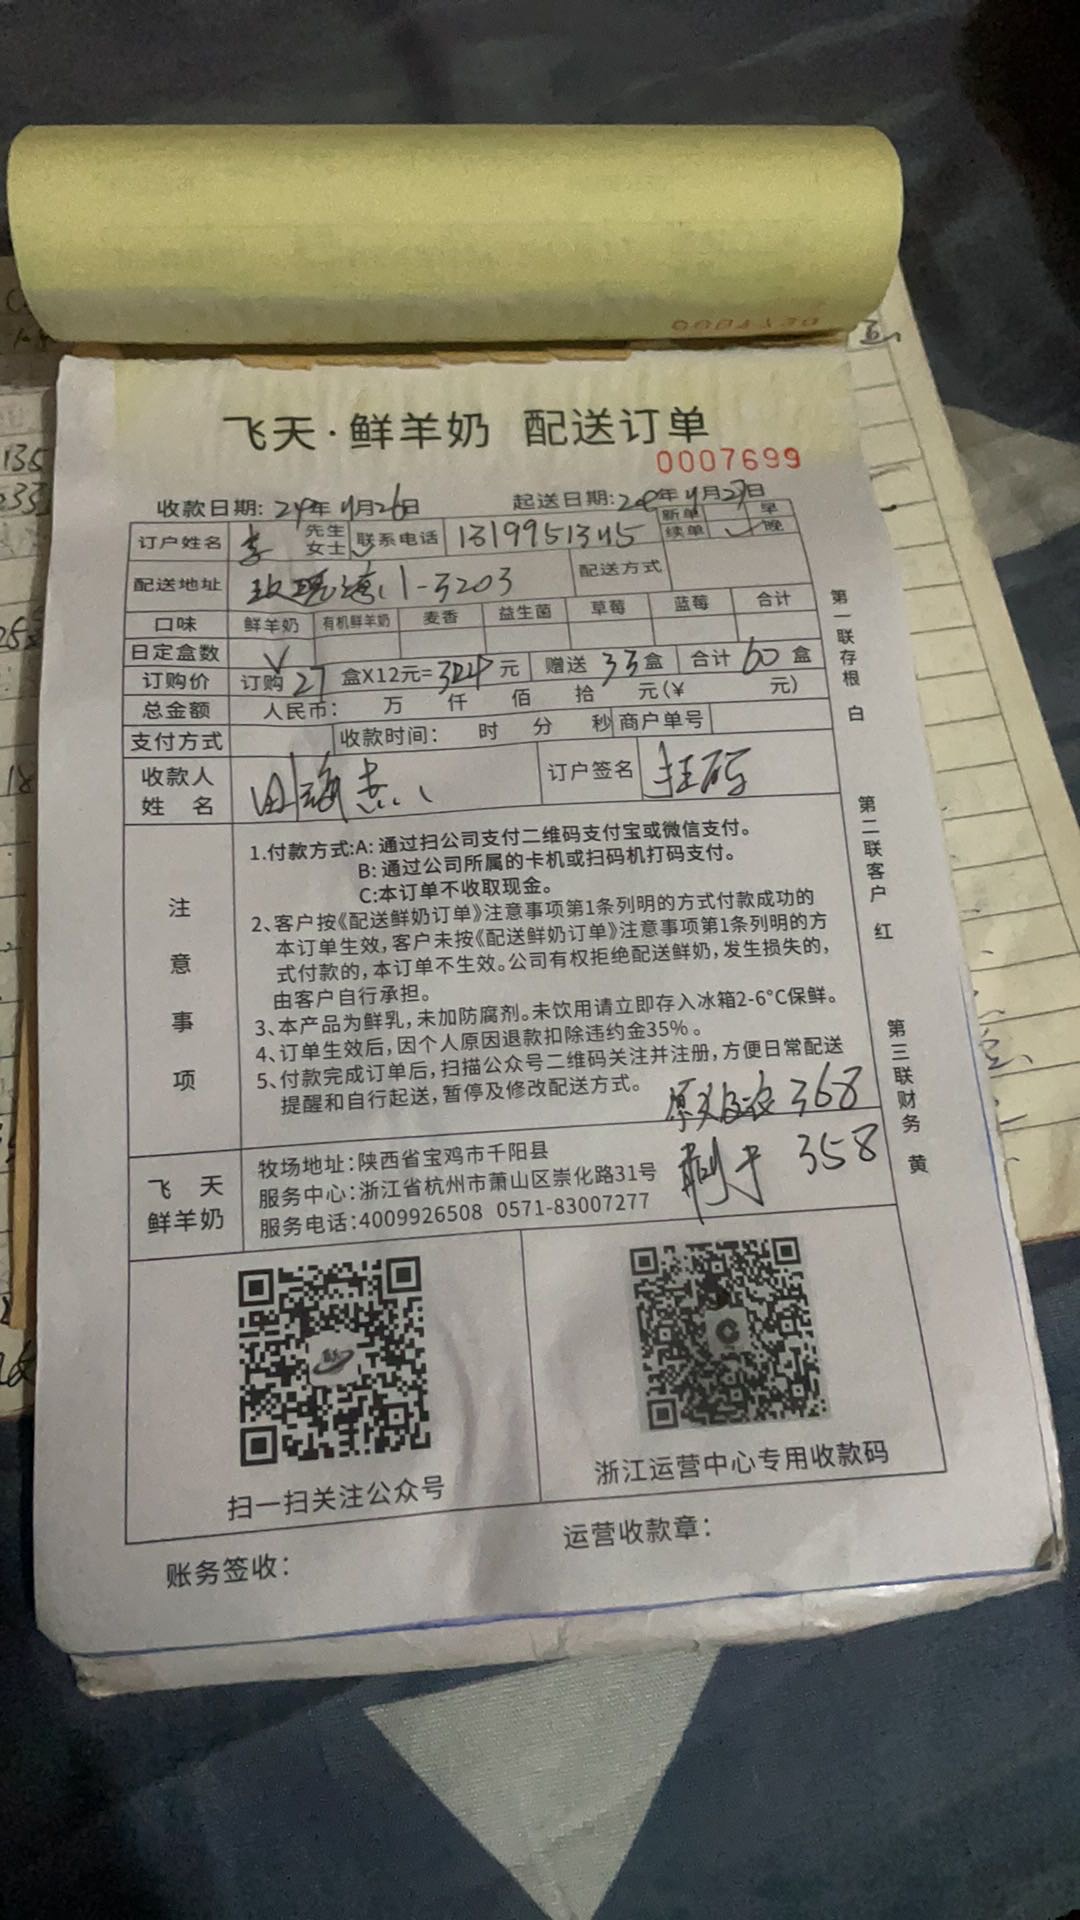 飞天·鲜羊奶 配送订单
0007699
收款日期: 年 月26日 起送日期: 年 月27日
订户姓名 李 先生 女士 联系电话 新单 续单 ✓ 早 晚
配送地址 1-3203 配送方式
口味 鲜羊奶 有机鲜羊奶 麦香 益生菌 草莓 蓝莓 合计
日定盒数 ✓
订购价 订购 27 盒X12元= 324 元 赠送 33 盒 合计 60 盒
总金额 人民币: 万 仟 佰 拾 元(¥ 元)
支付方式 收款时间: 时 分 秒 商户单号
收款人 姓 名 田海杰 订户签名
注意事项
1.付款方式:A: 通过扫公司支付二维码支付宝或微信支付。
B: 通过公司所属的卡机或扫码机打码支付。
C:本订单不收取现金。
2、客户按《配送鲜奶订单》注意事项第1条列明的方式付款成功的
本订单生效,客户未按《配送鲜奶订单》注意事项第1条列明的方
式付款的,本订单不生效。公司有权拒绝配送鲜奶,发生损失的,
由客户自行承担。
3、本产品为鲜乳,未加防腐剂。未饮用请立即存入冰箱2-6°C保鲜。
4、订单生效后,因个人原因退款扣除违约金35%。
5、付款完成订单后,扫描公众号二维码关注并注册,方便日常配送
提醒和自行起送,暂停及修改配送方式。
368
358
飞天 鲜羊奶
牧场地址:陕西省宝鸡市千阳县
服务中心:浙江省杭州市萧山区崇化路31号
服务电话:4009926508 0571-83007277
扫一扫关注公众号
浙江运营中心专用收款码
账务签收:
运营收款章:
第一联存根 白
第二联客户 红
第三联财务 黄